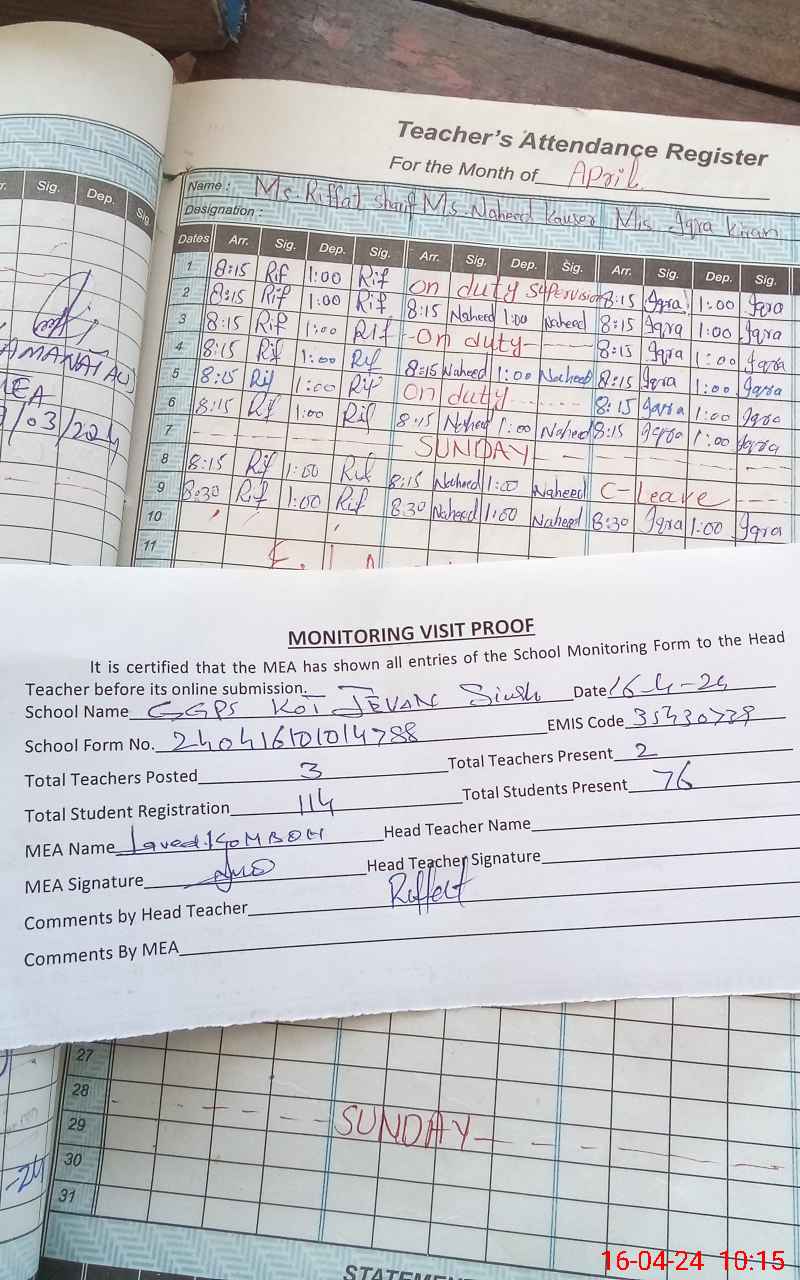 Teacher's Attendance Register
For the Month of April
Sig. Dep. Sig.
Name : Ms. Riffat sharif Ms. Naheed Kauser Miss Iqra Kiran
Designation :
Dates Arr. Sig. Dep. Sig. Arr. Sig. Dep. Sig. Arr. Sig. Dep. Sig.
1 8:15 Rif 1:00 Rif On duty Supervision 8:15 Iqra 1:00 Iqra
2 8:15 Rif 1:00 Rif 8:15 Naheed 1:00 Naheed 8:15 Iqra 1:00 Iqra
3 8:15 Rif 1:00 Rif -On duty- 8:15 Iqra 1:00 Iqra
4 8:15 Rif 1:00 Rif 8:15 Naheed 1:00 Naheed 8:15 Iqra 1:00 Iqra
5 8:15 Rif 1:00 Rif On duty 8:15 Iqra 1:00 Iqra
6 8:15 Rif 1:00 Rif 8:15 Naheed 1:00 Naheed 8:15 Iqra 1:00 Iqra
7 SUNDAY
8 8:15 Rif 1:00 Rif 8:15 Naheed 1:00 Naheed C-Leave
9 8:30 Rif 1:00 Rif 8:30 Naheed 1:00 Naheed 8:30 Iqra 1:00 Iqra
10
11
AMANAT ALI
MEA
/03/2024
MONITORING VISIT PROOF
It is certified that the MEA has shown all entries of the School Monitoring Form to the Head
Teacher before its online submission.
School Name GGPS KOT JEVAN Singh Date 16-4-24
School Form No. EMIS Code
Total Teachers Posted 3 Total Teachers Present 2
Total Student Registration 114 Total Students Present 76
MEA Name Javed KOMBOH Head Teacher Name
MEA Signature Head Teacher Signature
Comments by Head Teacher Riffat
Comments By MEA
27
28
29 SUNDAY
30
31
-24
STATEMEN
16-04-24 10:15